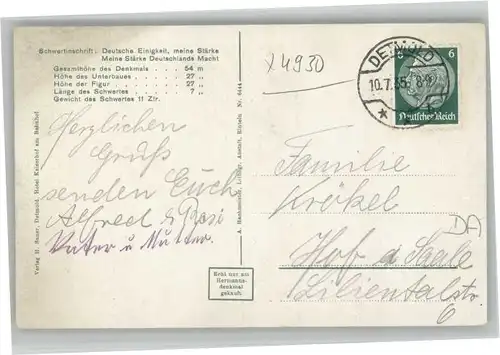 Schwertinschrift: Deutsche Einigkeit, meine Stärke
Meine Stärke Deutschlands Macht
Gesamthöhe des Denkmals . . . . 54 m
Höhe des Unterbaues . . . . 27 „
Höhe der Figur . . . . 27 „
Länge des Schwertes . . . . 7 „
Gewicht des Schwertes 11 Ztr.
Herzlichen
Gruß
senden Euch
Alfred & Rosi
Vater u Mutter.
Verlag H. Sauer, Detmold, Hotel Kaiserhof am Bahnhof
Echt nur am
Hermanns-
denkmal
gekauft.
x 4930
DETMOLD
10.7.35
6
Deutsches Reich
Familie
Krökel
Hof a Saale
Lilientalstr
6